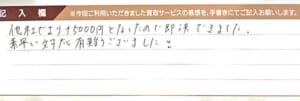 記入欄 ※今回ご利用いただきました買取サービスの感想を、手書きにてご記入お願いします。
他社でより+5000円となったので即決できました。
素早い対応有難うございました!